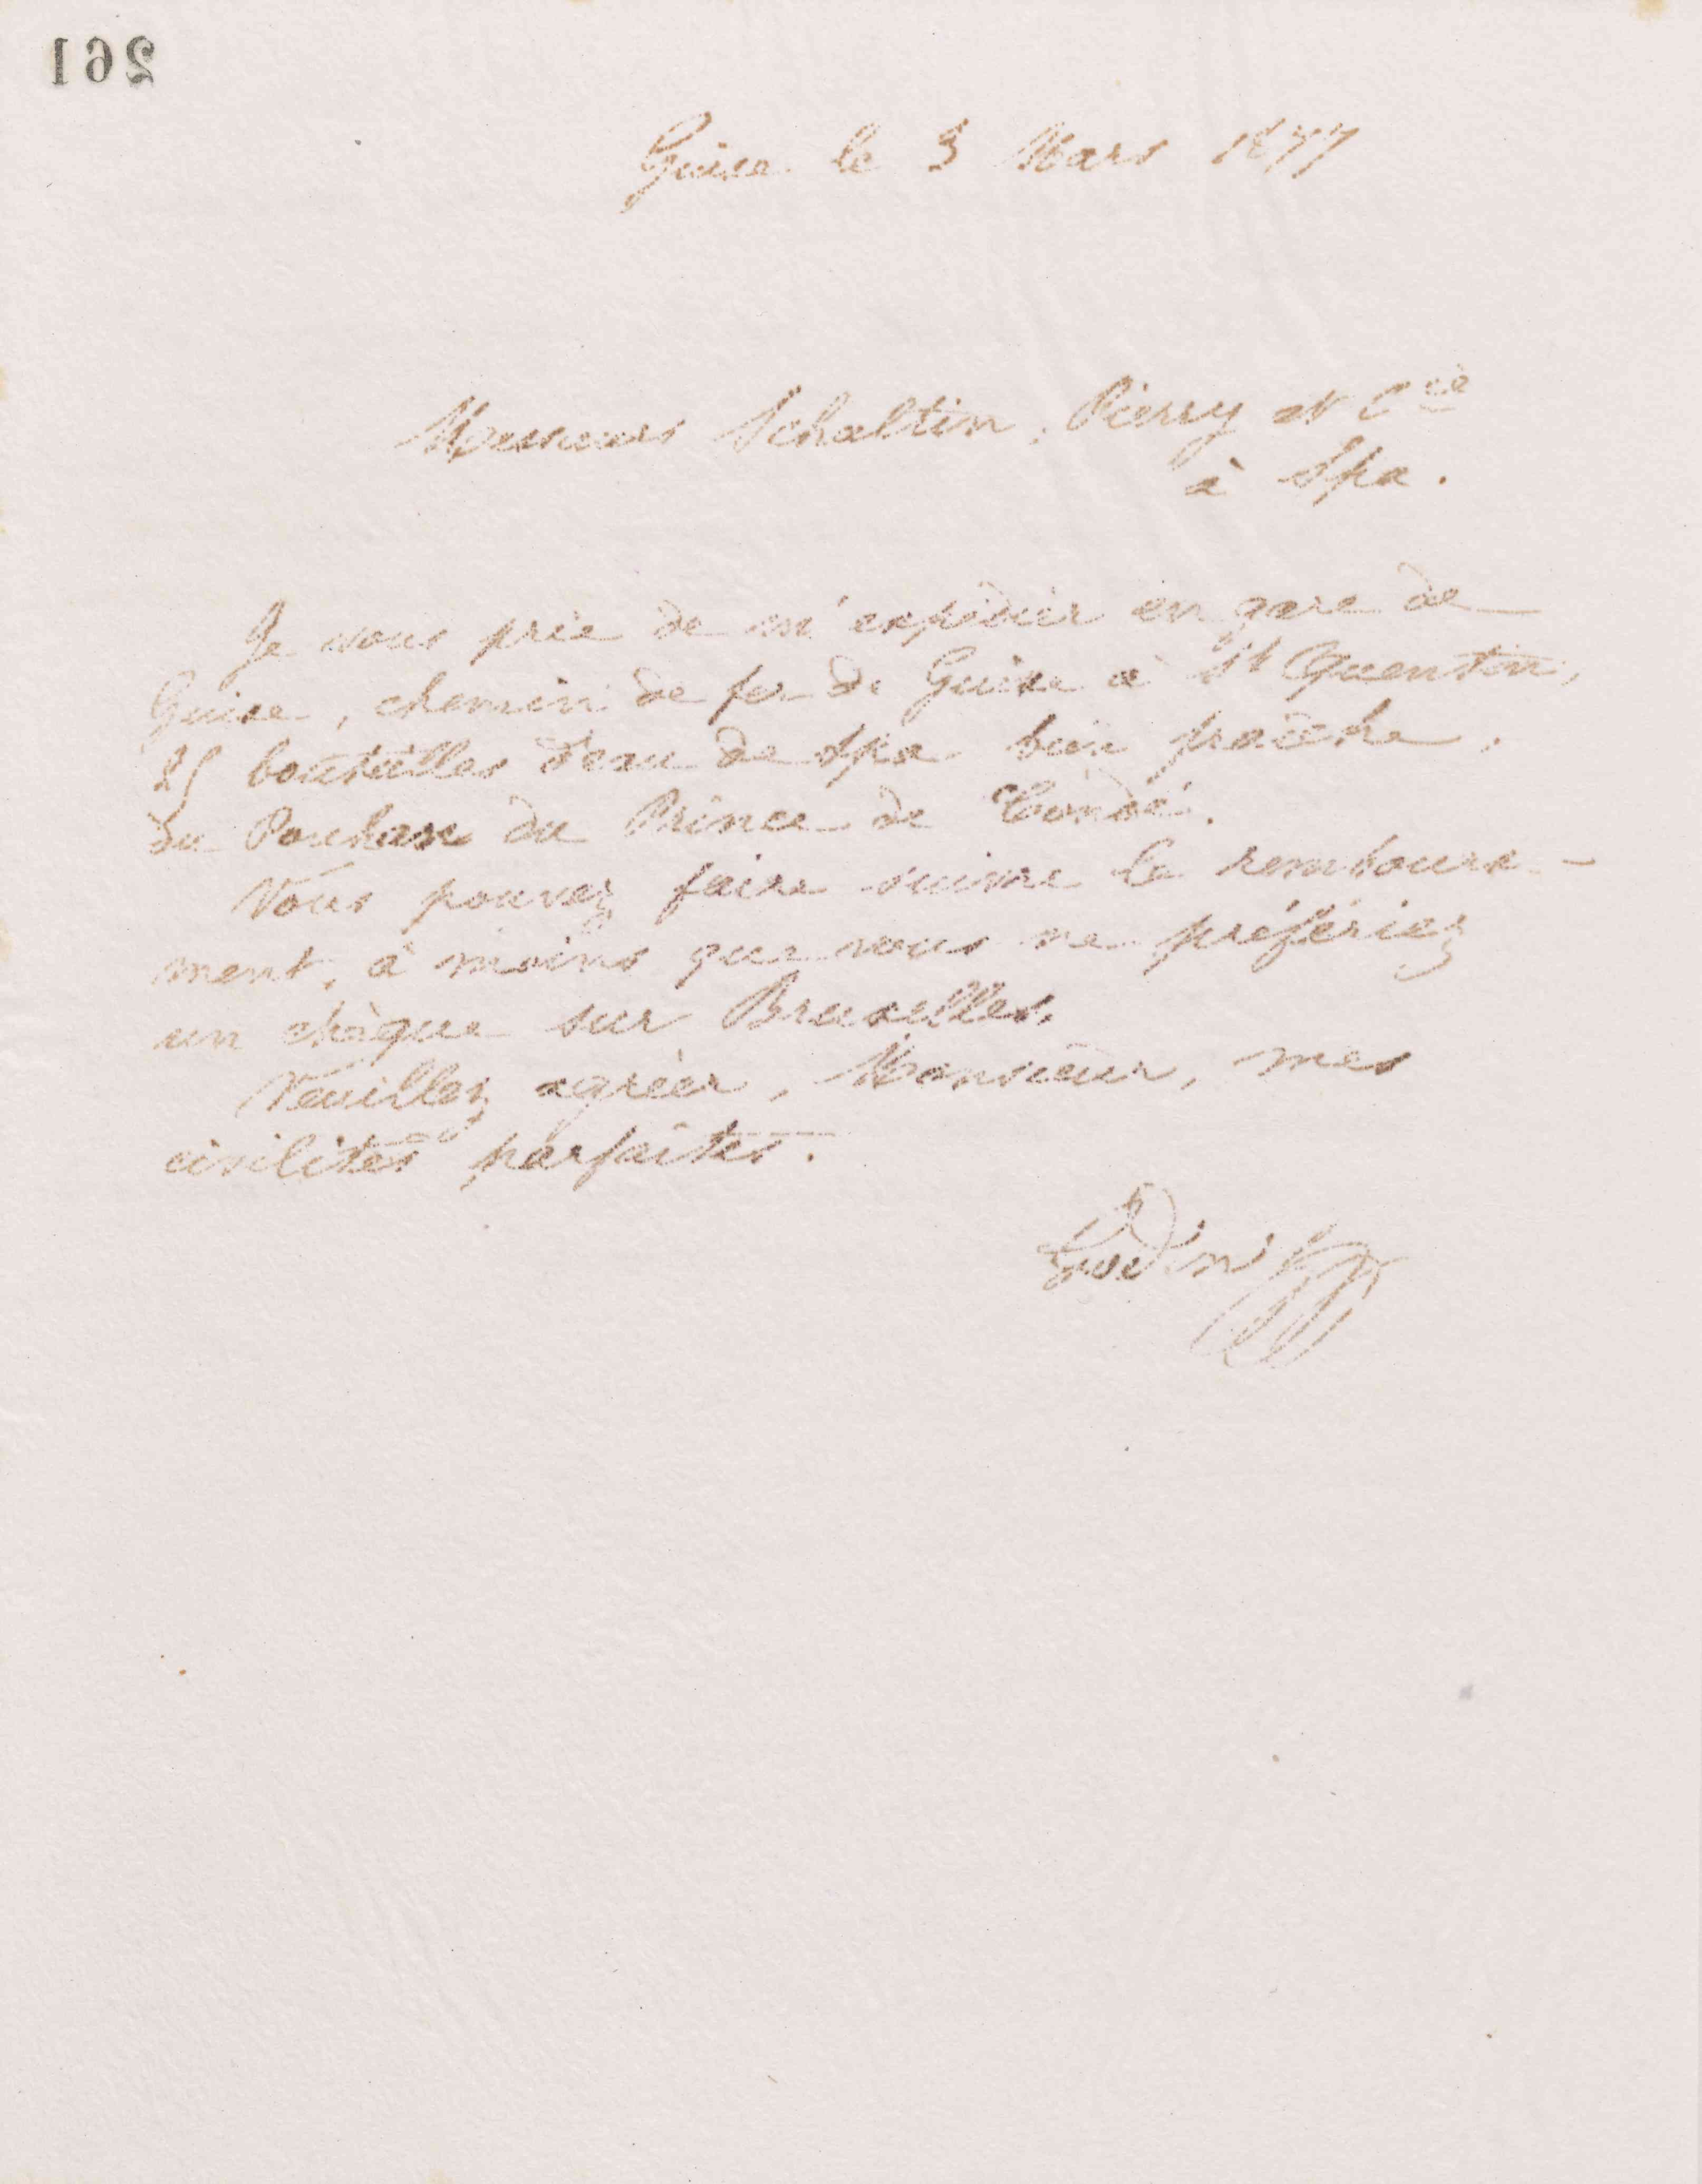 261
Guise le 3 Mars 1877
Messieurs Schaltin, Pierry et Cie
à Spa.
Je vous prie de m'expédier en gare de
Guise, chemin de fer de Guise à St Quentin,
25 bouteilles d'eau de Spa bien fraîche,
du Pouhon du Prince de Condé.
Vous pouvez faire suivre le rembourse-
ment, à moins que vous ne préfériez
un chèque sur Bruxelles.
Veuillez agréer, Monsieur, mes
civilités parfaites.
Godin